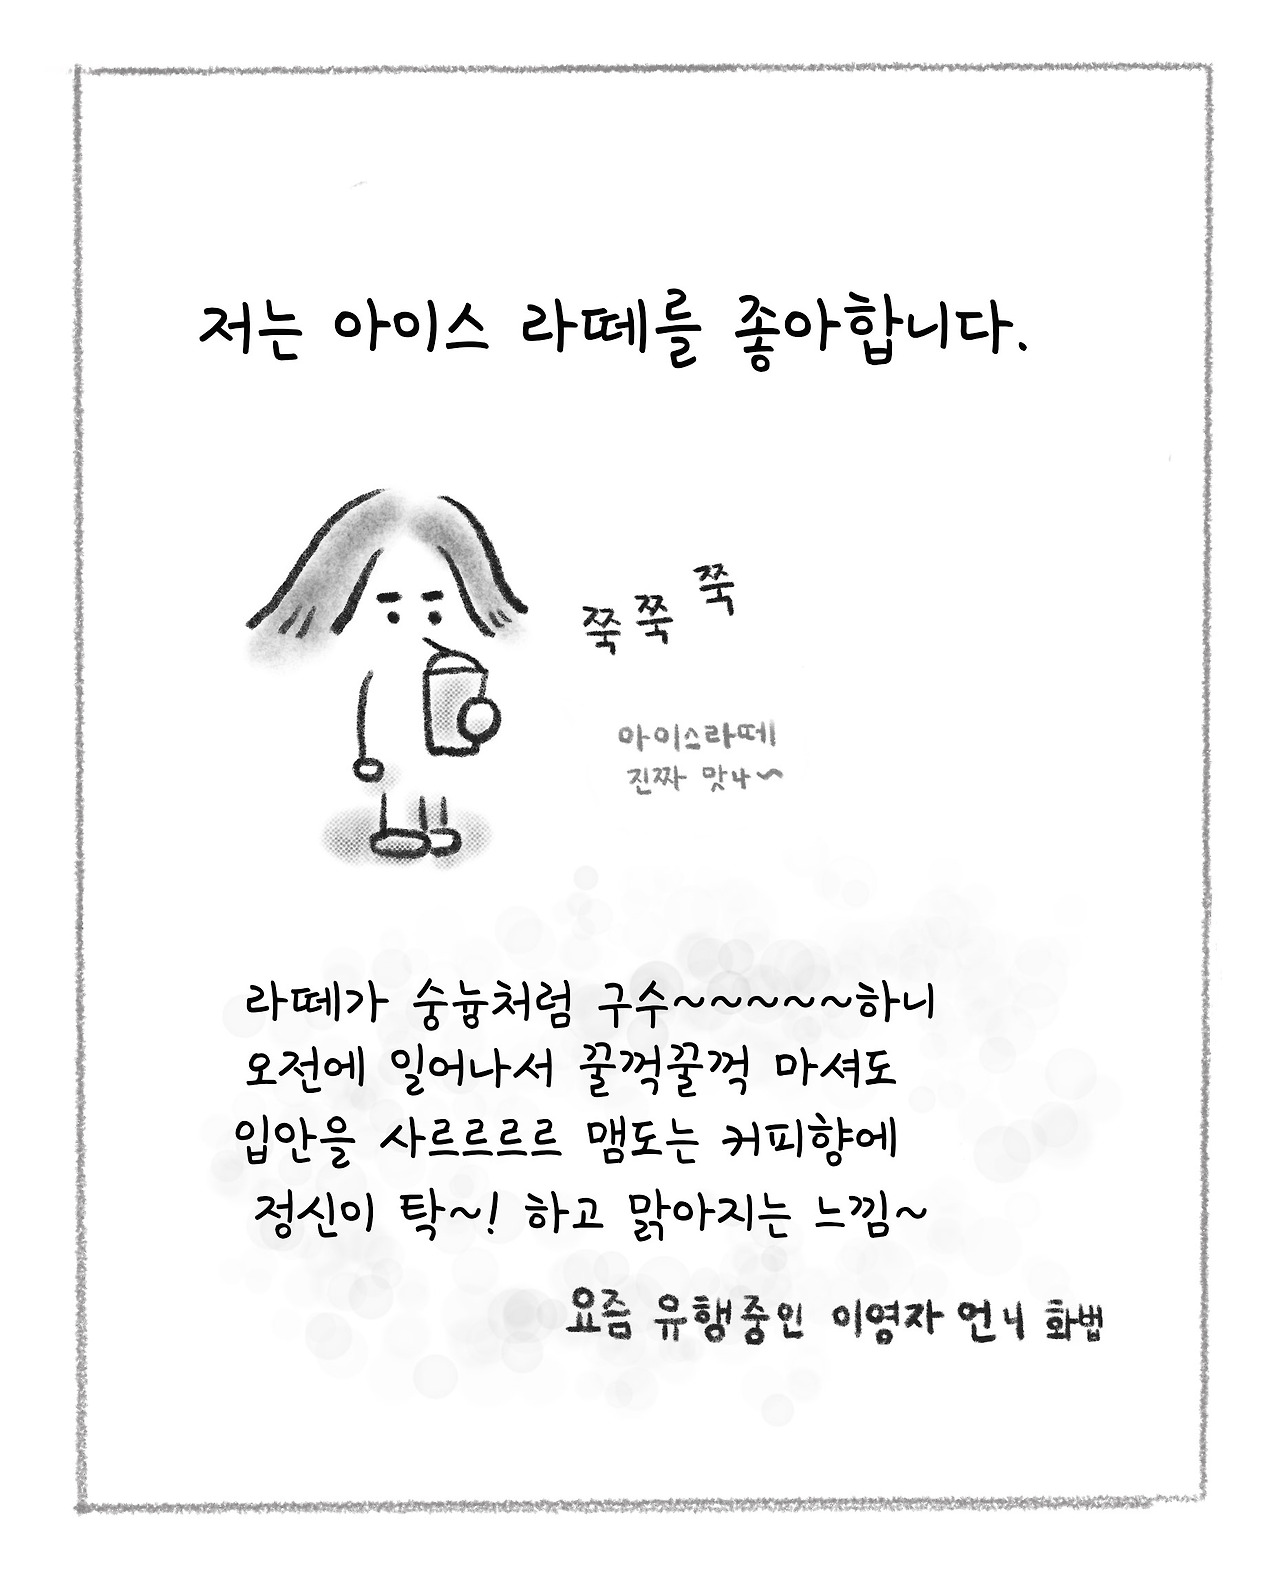 저는 아이스 라떼를 좋아합니다.
쭉 쭉 쭉
아이스라떼
진짜 맛나~
라떼가 숭늉처럼 구수~~~~~하니
오전에 일어나서 꿀꺽꿀꺽 마셔도
입안을 사르르르르 맴도는 커피향에
정신이 탁~! 하고 맑아지는 느낌~
요즘 유행중인 이영자 언니 화법